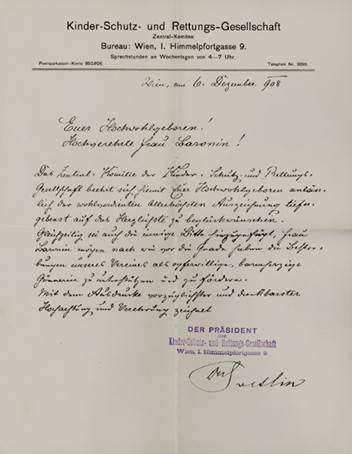 Kinder-Schutz- und Rettungs-Gesellschaft
Zentral-Komitee.
Bureau: Wien, I. Himmelpfortgasse 9.
Sprechstunden an Wochentagen von 4—7 Uhr.
Postsparkassen-Konto 850.806. Telephon Nr. 9299.
Wien, am 6. Dezember 1908
Euer Hochwohlgeboren!
Hochverehrte Frau Baronin!
Das Zentral-Komitee der Kinder-Schutz- und Rettungs-
Gesellschaft beehrt sich hiemit Euer Hochwohlgeboren anläss-
lich der wohlverdienten Allerhöchsten Auszeichnung tiefer-
gebenst auf das Herzlichste zu beglückwünschen.
Gleichzeitig sei auch die innige Bitte hinzugefügt, Frau
Baronin mögen nach wie vor die Gnade haben die Bestre-
bungen unseres Vereines als opferwillige, barmherzige
Gönnerin zu unterstützen und zu fördern.
Mit dem Ausdrucke vorzüglichster und dankbarster
Hochachtung und Verehrung zeichnet
DER PRÄSIDENT
der
Kinder-Schutz- und Rettungs-Gesellschaft
Wien, I. Himmelpfortgasse 9